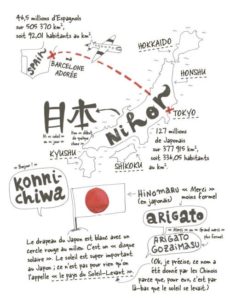 46,5 millions d'Espagnols
sur 505 370 km²,
soit 92,01 habitants au km².
SPAIN
MA
BARCELONE
ADORÉE
HOKKAIDO
HONSHU
TOKYO
日本
NIPON
KYUSHU
SHIKOKU
127 millions
de Japonais
sur 377 915 km²,
soit 336,09 habitants
au km².
« Bonjour ! »
KONNICHIWA
HINOMARU
(en japonais)
« Merci »
moins formel
ARIGATO
ARIGATO
GOZAIMASU
Le drapeau du Japon est blanc avec un
cercle rouge au milieu. C'est un « disque
solaire ». Le soleil est super important
au Japon ; ce n'est pas pour rien qu'on
l'appelle « le pays du Soleil-Levant ».
(Ok, je précise, ce nom a
été donné par les Chinois
parce que, pour eux, c'est par
là-bas que le soleil se levait.)